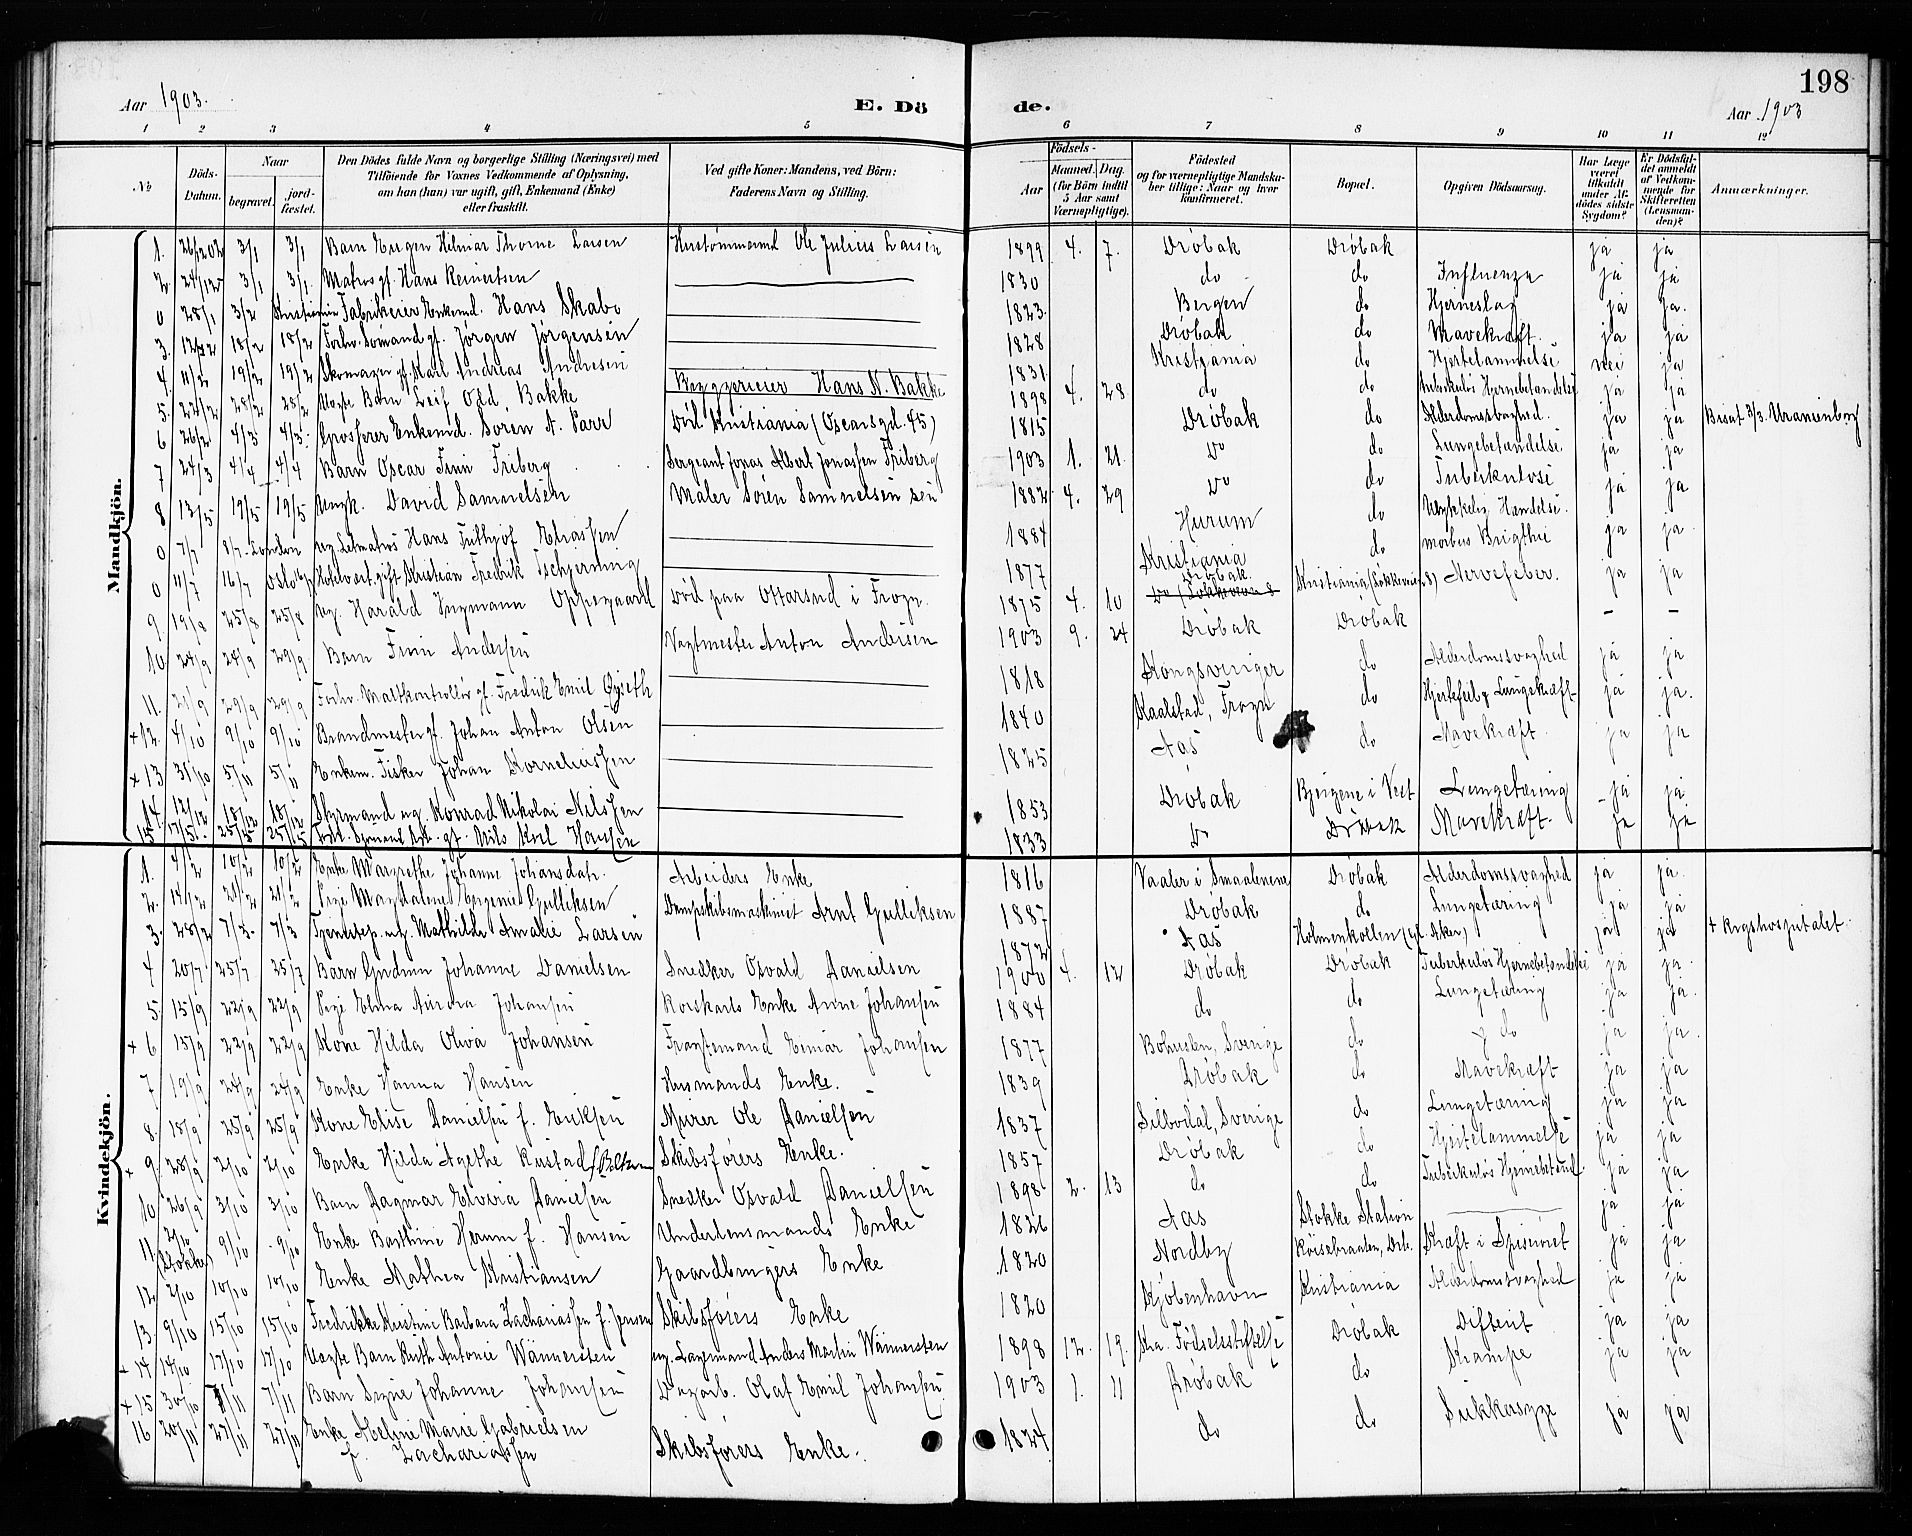 198
Aar 1903. E. Döde. Aar 1903
1 2 3 4 5 6 7 8 9 10 11 12
No Döds-Datum. Naar begravet. jordfæstet. Den Dödes fulde Navn og borgerlige Stilling (Næringsvei) med Tilföiende for Voxnes Vedkommende af Oplysning, om han (hun) var ugift, gift, Enkemand (Enke) eller fraskilt. Ved gifte Koner: Mandens, ved Börn: Faderens Navn og Stilling. Födsels- Aar Maaned. Dag. (for Börn indtil 5 Aar samt Værnepligtige). Födested og for værnepligtige Mandskaber tillige: Naar og hvor konfirmeret. Bopæl. Opgiven Dödsaarsag. Har Læge været tilkaldt under Afdödes sidste Sygdom? Er Dödsfaldet anmeldt af Vedkommende for Skifteretten (Lensmanden)? Anmærkninger.
Mandkjön.
1. 26/12 02 3/1 3/1 Barn Eugen Hilmar Thorne Larsen Hustømmermd Ole Julius Larsen 1899 4. 7. Drøbak Drøbak ja ja
2 24/12 3/1 3/1 Matros gf. Hans Reinertsen 1830 do do Influenza ja ja
0 28/1 3/2 Kristiania Fabrikeier Enkemd. Hans Skabo 1823 Bergen do Hjerneslag ja ja.
3. 12/2 18/2 18/2 Forhv. Sømand gf. Jørgen Jørgensen 1828 Drøbak do Mavekræft. ja ja
4. 11/2 19/2 19/2 Skomager gf. Karl Andreas Andresen 1831 Kristiania do Hjertelammelse nei ja
5. 22/2 28/2 28/2 Uægte Barn Leif Odd Bakke Byggerieier Hans N. Bakke 1898 4. 28 do do tuberkuløs Hjernebetændelse ja ja
6 26/2 4/3 4/3 Grosserer Enkemd. Søren A. Parr Død Kristiania (Oscarsgd. 45) 1815 Drøbak do Alderdomssvaghed. ja ja Bisat 3/3. Uranienborg
7 24/3 4/4 4/4 Barn Oscar Finn Friberg Sergeant Jonas Albert Jonassen Friberg 1903 1. 21 Do do Lungebetændelse ja ja
8 13/5 19/5 19/5 Ungk. David Samuelsen Maler Søren Samuelsen sen 1882 4. 29 Do do Tuberkulose ja ja
0 7/7 8/7 London ug. Letmatros Hans Frithjof Eliassen 1884 Hurum do Ulykkelig Hændelse. ja ja
0 11/7 16/7 Oslo Hotelvært. gift Kristian Fredrik Tschjerning 1877 Kristiania do morbus Brigthii
9 19/8 25/8 25/8 ug. Harald Ingmann Oppegaard Død paa Ottarsrud i Frogn. 1875 4. 10 Drøbak Kristiania (Løkkeveien 8) Nervefeber. ja ja
10 24/9 24/9 29/9 Barn Finn Andersen Vagtmester Anton Andersen 1903 9. 24 Drøbak Drøbak – –
11. 21/9 29/9 29/9 Forhv. Maltkontrollør gf. Fredrik Emil Gyseth 1818 Kongsvinger do Alderdomssvaghed ja ja
+12. 4/10 9/10 9/10 Brandmester gf. Johan Anton Olsen 1840 Kaalstad, Frogn do Hjertefeil & Lungekræft ja ja.
+13 31/10 5/11 5/11 Enkem. Fisker Johan Korneliussen 1825 Aas do Mavekræft. ja ja
14. 12/12 18/12 18/12 Styrmand ug. Konrad Nikolai Nilssen 1853 Drøbak Bjergene i Vest Lungetæring ja ja
15 25/12 25/12 gf. Nils Karl Hanssen 1833 Do Drøbak Mavekræft. ja ja
Kvindekjön.
1. 4/2 10/2 10/2 Enke Margrethe Johanne Johansdatr. Arbeiders Enke 1816 Vaaler i Smaalenene Drøbak Alderdomssvaghed ja ja.
2. 14/2 21/2 21/2 Pige Magdalene Eugenie Gulliksen Dampskibsmaskinist Arnt Gulliksen 1887 Drøbak do Lungetæring ja ja
3. 28/2 7/3 7/3 Tjenestep. ug. Mathilde Amalie Larsen 1872 Aas Holmenkollen (v. Aker) ja ja + Rigshospitalet
4 20/7 25/7 25/7 Barn Gudrun Johanne Danielsen Snedker Osvald Danielsen 1900 4. 12 Drøbak Drøbak Tuberkuløs Hjernebetændelse ja ja
5 15/9 22/9 22/9 Pige Elma Aurora Johansen Korskarls Enke Anne Johansen 1884 do do Lungetæring ja ja
+6 15/9 22/9 22/9 Kone Hilda Oliva Johansen Fragtemand Einar Johansen 1877 Bohuslen, Sverige do do ja ja
7 19/9 24/9 24/9 Enke Hanna Hansen Husmands Enke. 1839 Drøbak do Mavekræft ja ja
8. 18/9 25/9 25/9 Kone Elise Danielsen f. Eriksen Murer Ole Danielsen 1837 Silbodal, Sverige do Lungetæring ja ja
+9. 28/9 2/10 2/10 Enke Hilda Agethe Rustad Skibsførers Enke. 1857 Drøbak do Hjertelammelse ja ja
10 26/9 3/10 3/10 Barn Dagmar Elvera Danielsen Snedker Osvald Danielsen 1898 2. 13 do do Tuberkuløs Hjernebetænd. ja ja
11. 2/10 (Stokke) 9/10 9/10 Enke Barthine Herum f. Hansen Underlensmands Enke 1826 Aas Stokke Station ja ja
12 2/10 10/10 10/10 Enke Mathea Kristiansen Gaardbrugers Enke 1820 Nordby Drb. Kræft i Spiserøret ja ja
13. 9/10 15/10 15/10 Fredrikke Kirstine Barbara Zachariassen f. Jensen Skibsførers Enke 1820 Kjøbenhavn Kristiania Alderdomssvaghed ja ja
+14 14/10 17/10 17/10 Uægte Barn Ruth Antonie Wännersten ug. Lagermand Anders Martin Wännersten 1898 12. 19. Kra. Fødselsstiftelse Drøbak Difterit ja ja
+15 30/10 7/11 7/11 Barn Signe Johanne Johansen Dagarb. Olaf Emil Johansen. 1903 1. 11 Drøbak do Krampe ja ja
16 20/11 27/11 27/11 Enke Abeline Marie Gabrielsen f. Zachariassen Skibsførers Enke. 1824 do do Sukkersyge ja ja